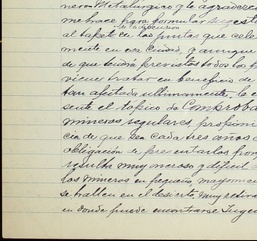 nero Metalúrgico y le agradeceré
me trace para formular sugestiones
al tapete en las juntas que cele
mente en esa Ciudad, y aunque
de que tendrá previstos todos los
viene tratar en beneficio de
tan afectada ultimamente, le
sente el topico de Comproba
mineros regulares, proponi
cia de que sea cada tres años
obligación de presentarlos pro
resulta muy oneroso y dificil
los mineros en pequeño mayorme
se hallen en el desierto, muy retira
en donde puede encontrarse Ingen